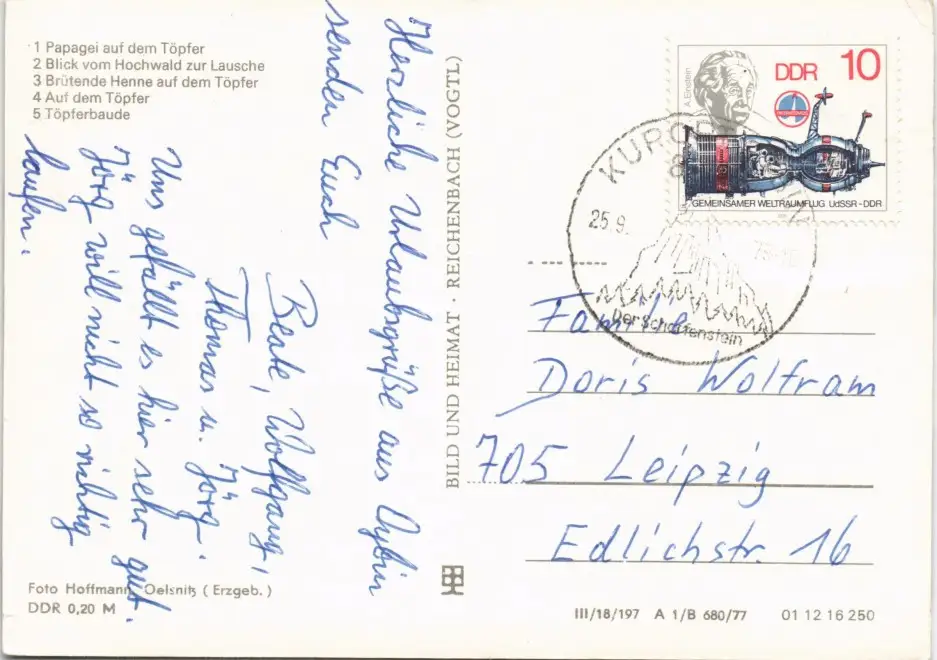 1 Papagei auf dem Töpfer
2 Blick vom Hochwald zur Lausche
3 Brütende Henne auf dem Töpfer
4 Auf dem Töpfer
5 Töpferbaude
Herzliche Urlaubsgrüße aus Oybin
senden Euch
Beate, Wolfgang,
Thomas u. Jörg.
Uns gefällt es hier sehr gut.
Jörg will nicht so richtig
laufen.
Foto Hoffmann, Oelsnitz (Erzgeb.)
DDR 0,20 M
BILD UND HEIMAT · REICHENBACH (VOGTL)
A. Einstein
DDR 10
GEMEINSAMER WELTRAUMFLUG UdSSR-DDR
25.9.
Der Scharfenstein
Familie
Doris Wolfram
705 Leipzig
Edlichstr. 16
III/18/197 A 1/B 680/77 01 12 16 250